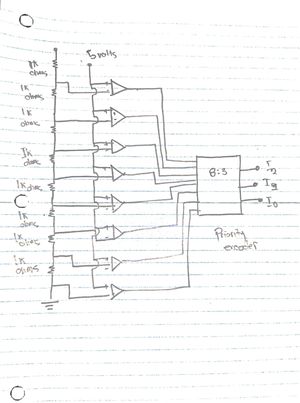 5 volts
1K
ohms
1K
ohms
1K
ohms
1K
ohms
1K ohms
1K
ohms
1K
ohms
1K
ohms
8:3
I2
I1
I0
Priority
encoder